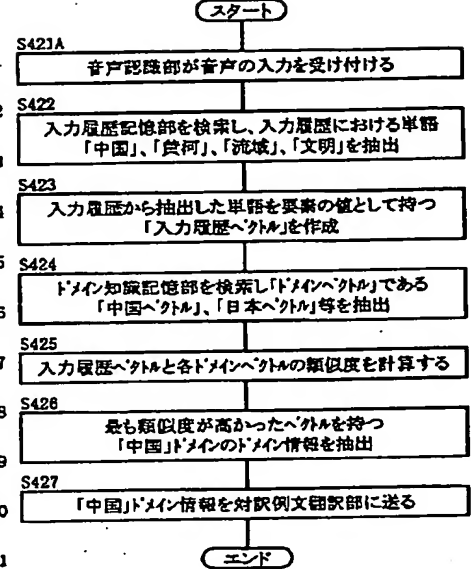 スタート
S421A
音声認識部が音声の入力を受け付ける
S422
入力履歴記憶部を検索し、入力履歴における単語
「中国」、「黄河」、「流域」、「文明」を抽出
S423
入力履歴から抽出した単語を要素の値として持つ
「入力履歴ベクトル」を作成
S424
ドメイン知識記憶部を検索し「ドメインベクトル」である
「中国ベクトル」、「日本ベクトル」等を抽出
S425
入力履歴ベクトルと各ドメインベクトルの類似度を計算する
S426
最も類似度が高かったベクトルを持つ
「中国」ドメインのドメイン情報を抽出
S427
「中国」ドメイン情報を対訳例文翻訳部に送る
エンド